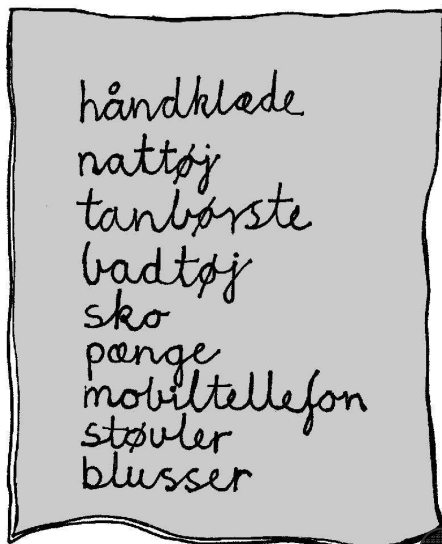 håndklæde
nattøj
tanbørste
badtøj
sko
pænge
mobiltellefon
støvler
blusser